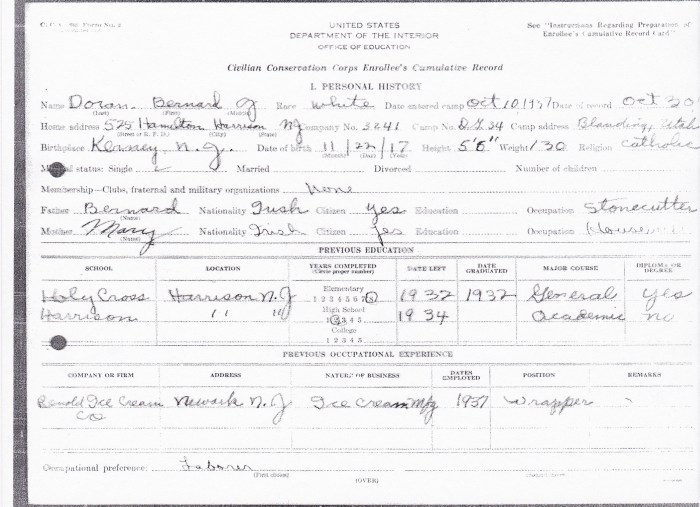 UNITED STATES
DEPARTMENT OF THE INTERIOR
OFFICE OF EDUCATION
See "Instructions Regarding Preparation of
Enrollee's Cumulative Record Card"
Civilian Conservation Corps Enrollee's Cumulative Record
I. PERSONAL HISTORY
Name Doran Bernard J Race White Date entered camp Oct 10, 1937 Date of record Oct 30
(Last) (First) (Middle)
Home address 525 Hamilton Harrison NJ Company No. 3241 Camp No. DG 34 Camp address Blanding, Utah
(Street or R. F. D.) (City) (State)
Birthplace Kearney, N. J. Date of birth 11/22/17 Height 5'6" Weight 130 Religion Catholic
(Month) (Day) (Year)
status: Single ✓ Married Divorced Number of children
Membership—Clubs, fraternal and military organizations None
Father Bernard Nationality Irish Citizen Yes Education Occupation Stonecutter
(Name)
Mother Mary Nationality Irish Citizen Yes Education Occupation
(Name)
PREVIOUS EDUCATION
SCHOOL LOCATION YEARS COMPLETED (Circle proper number) DATE LEFT DATE GRADUATED MAJOR COURSE DIPLOMA OR DEGREE
Elementary
Holy Cross Harrison N. J 1 2 3 4 5 6 7 8 1932 1932 General Yes
High School
Harrison " " 1 2 3 4 5 1934 Academic no
College
1 2 3 4 5
PREVIOUS OCCUPATIONAL EXPERIENCE
COMPANY OR FIRM ADDRESS NATURE OF BUSINESS DATES EMPLOYED POSITION REMARKS
Ice Cream Co Newark N. J Ice Cream Mfg 1937 Wrapper
Occupational preference: Laborer
(First choice)
(OVER)